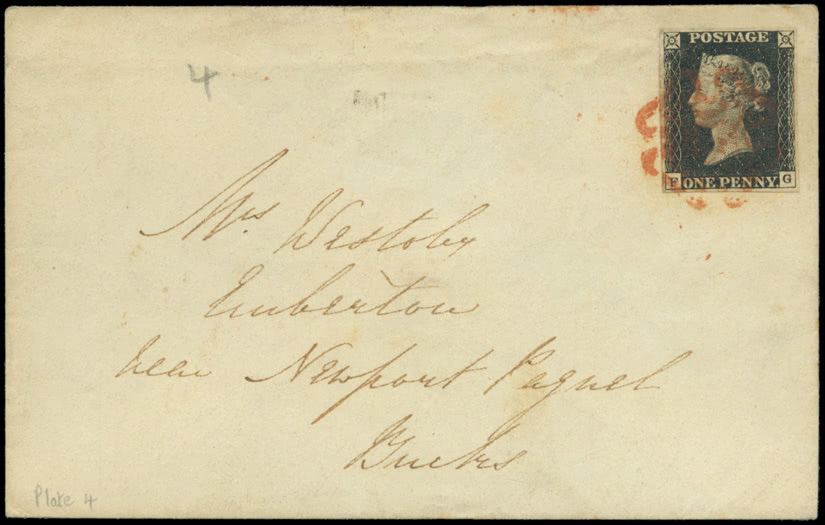 POSTAGE
4
F ONE PENNY G
Mrs Westoby
Emberton
near Newport Pagnel
Bucks
Plate 4